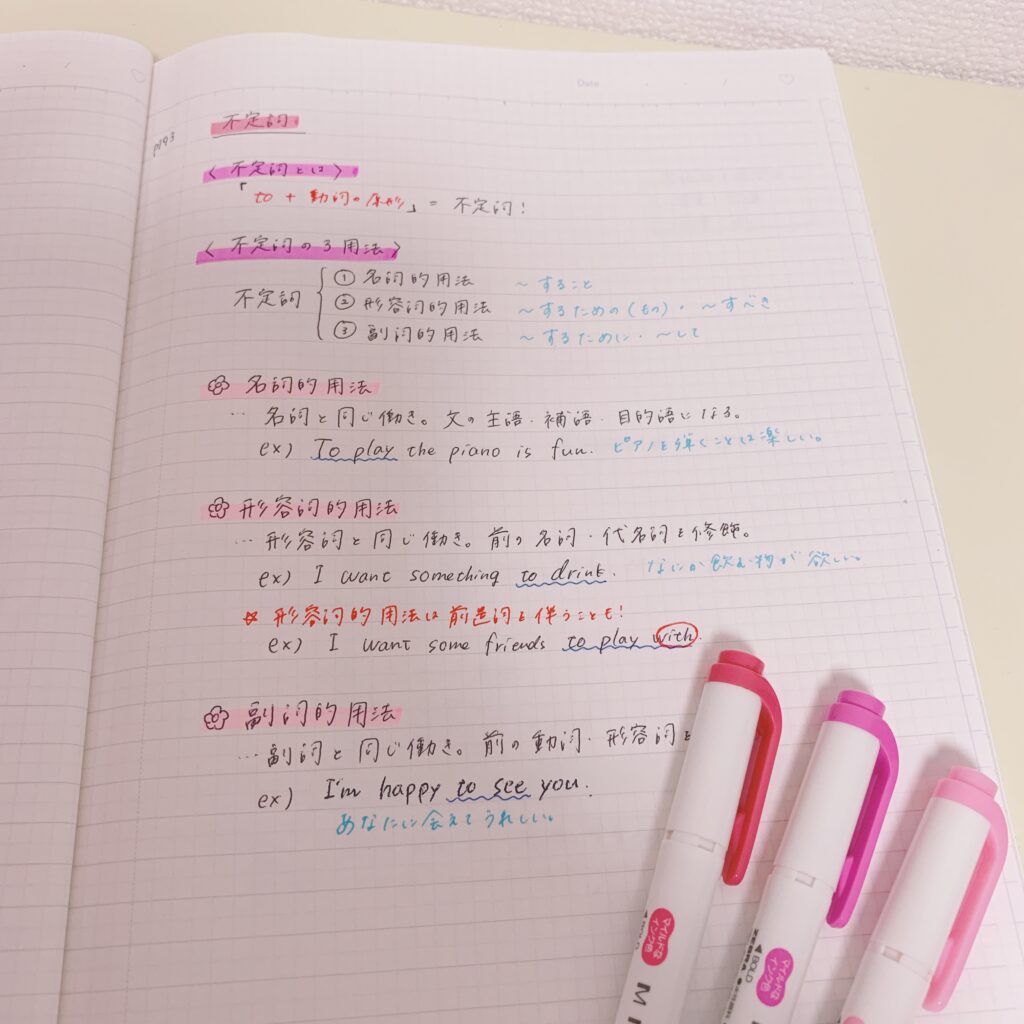 Date
p193
不定詞
〈不定詞とは〉
「to + 動詞の原形」= 不定詞!
〈不定詞の3用法〉
不定詞
① 名詞的用法 ～すること
② 形容詞的用法 ～するための(もの)・～すべき
③ 副詞的用法 ～するために・～して
名詞的用法
… 名詞と同じ働き。文の主語・補語・目的語になる。
ex) To play the piano is fun. ピアノを弾くことは楽しい。
形容詞的用法
… 形容詞と同じ働き。前の名詞・代名詞を修飾。
ex) I want something to drink. なにか飲む物が欲しい。
☆ 形容詞的用法は前置詞を伴うことも!
ex) I want some friends to play with.
副詞的用法
… 副詞と同じ働き。前の動詞・形容詞を
ex) I'm happy to see you.
あなたに会えてうれしい。
マイルドなインク色
BOLD
M
マイルドなインク色
ZEBRA
BOLD
M